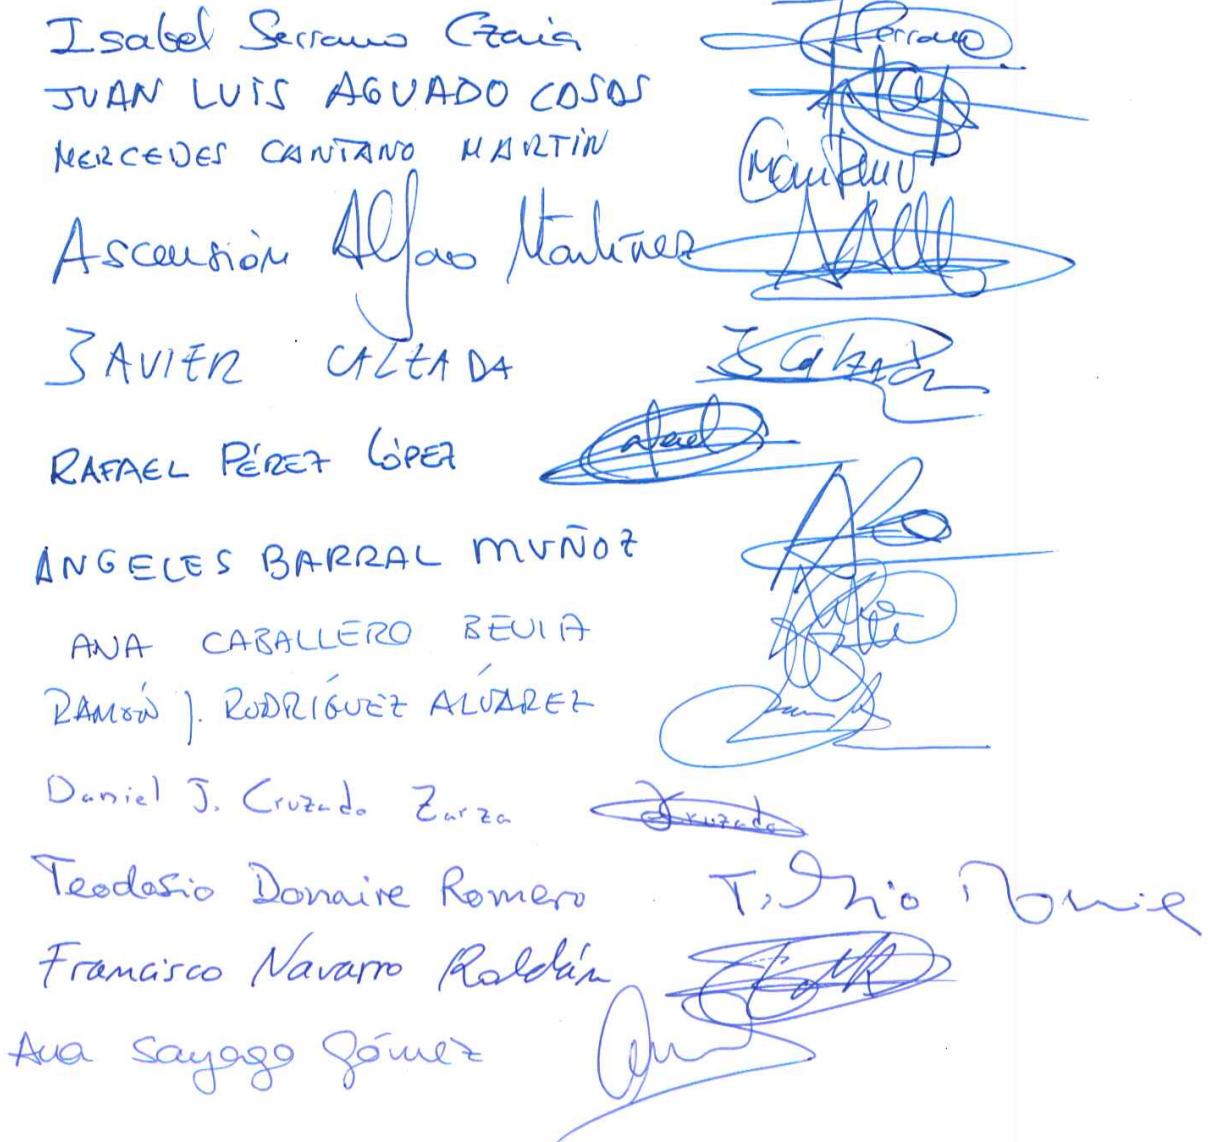 Isabel Serrano Czaia Serrano
JUAN LUIS AGUADO COSOS
MERCEDES CANTANO MARTÍN
Ascensión Alfaro Martínez
JAVIER CALZADA J Calzada
RAFAEL PÉREZ LÓPEZ Rafael
ANGELES BARRAL MUÑOZ
ANA CABALLERO BEVIA
RAMÓN J. RODRÍGUEZ ALVAREZ
Daniel J. Cruzado Zarza Cruzado
Teodosio Donaire Romero
Francisco Navarro Roldán
Ana Sayago Gómez